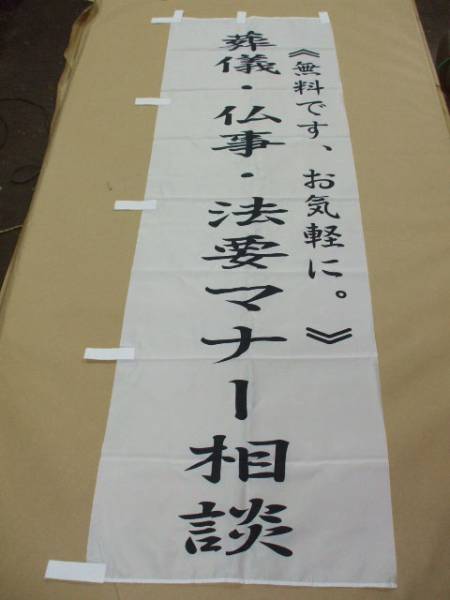 《無料です、お気軽に。》
葬儀・仏事・法要マナー相談